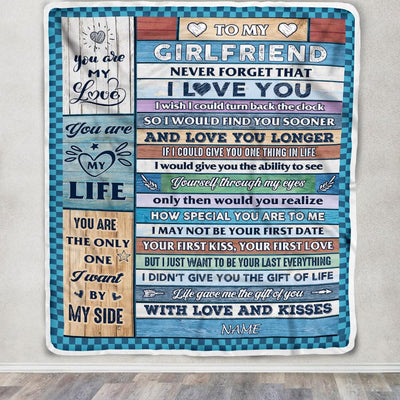 you are
MY
Love
You are
MY
LIFE
YOU ARE
THE ONLY
ONE
I want
BY
MY SIDE
TO MY
GIRLFRIEND
NEVER FORGET THAT
I LOVE YOU
I wish I could turn back the clock
SO I WOULD FIND YOU SOONER
AND LOVE YOU LONGER
IF I COULD GIVE YOU ONE THING IN LIFE
I would give you the ability to see
Yourself through my eyes
only then would you realize
HOW SPECIAL YOU ARE TO ME
I MAY NOT BE YOUR FIRST DATE
YOUR FIRST KISS, YOUR FIRST LOVE
BUT I JUST WANT TO BE YOUR LAST EVERYTHING
I DIDN'T GIVE YOU THE GIFT OF LIFE
Life gave me the gift of you
WITH LOVE AND KISSES
NAME